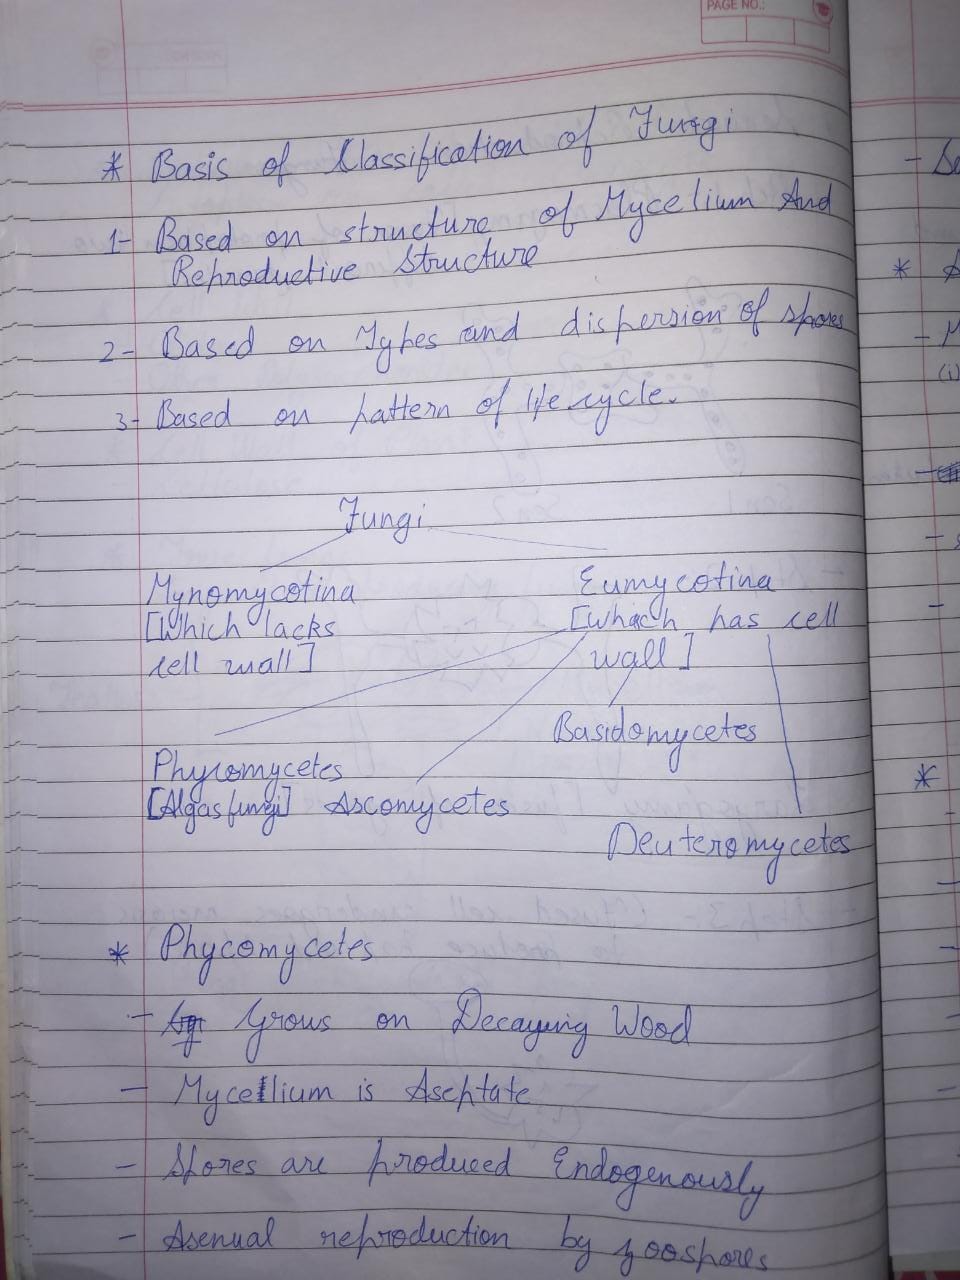 PAGE NO.:
* Basis of Classification of Fungi
1- Based on structure of Mycelium And
Reproductive Structure
2- Based on Types and dispersion of spores
3- Based on pattern of life cycle.
Fungi
Mynomycotina Eumycotina
[Which lacks [which has cell
cell wall] wall]
Basidomycetes
Phycomycetes
[Algas fungi] Ascomycetes
Deuteromycetes
* Phycomycetes
- Grows on Decaying Wood
- Mycellium is Aseptate
- Spores are produced Endogenously
- Asexual reproduction by zoospores